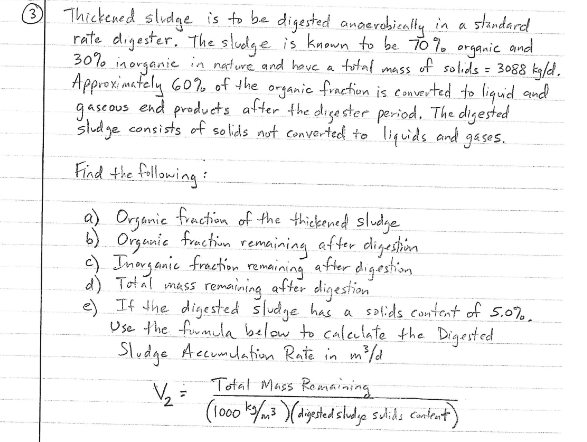 ③ Thickened sludge is to be digested anaerobically in a standard
rate digester. The sludge is known to be 70% organic and
30% inorganic in nature and have a total mass of solids = 3088 kg/d.
Approximately 60% of the organic fraction is converted to liquid and
gaseous end products after the digester period. The digested
sludge consists of solids not converted to liquids and gases.
Find the following:
a) Organic fraction of the thickened sludge
b) Organic fraction remaining after digestion
c) Inorganic fraction remaining after digestion
d) Total mass remaining after digestion
e) If the digested sludge has a solids content of 5.0%.
Use the formula below to calculate the Digested
Sludge Accumulation Rate in m³/d
V₂ = Total Mass Remaining
(1000 kg/m³)(digested sludge solids content)